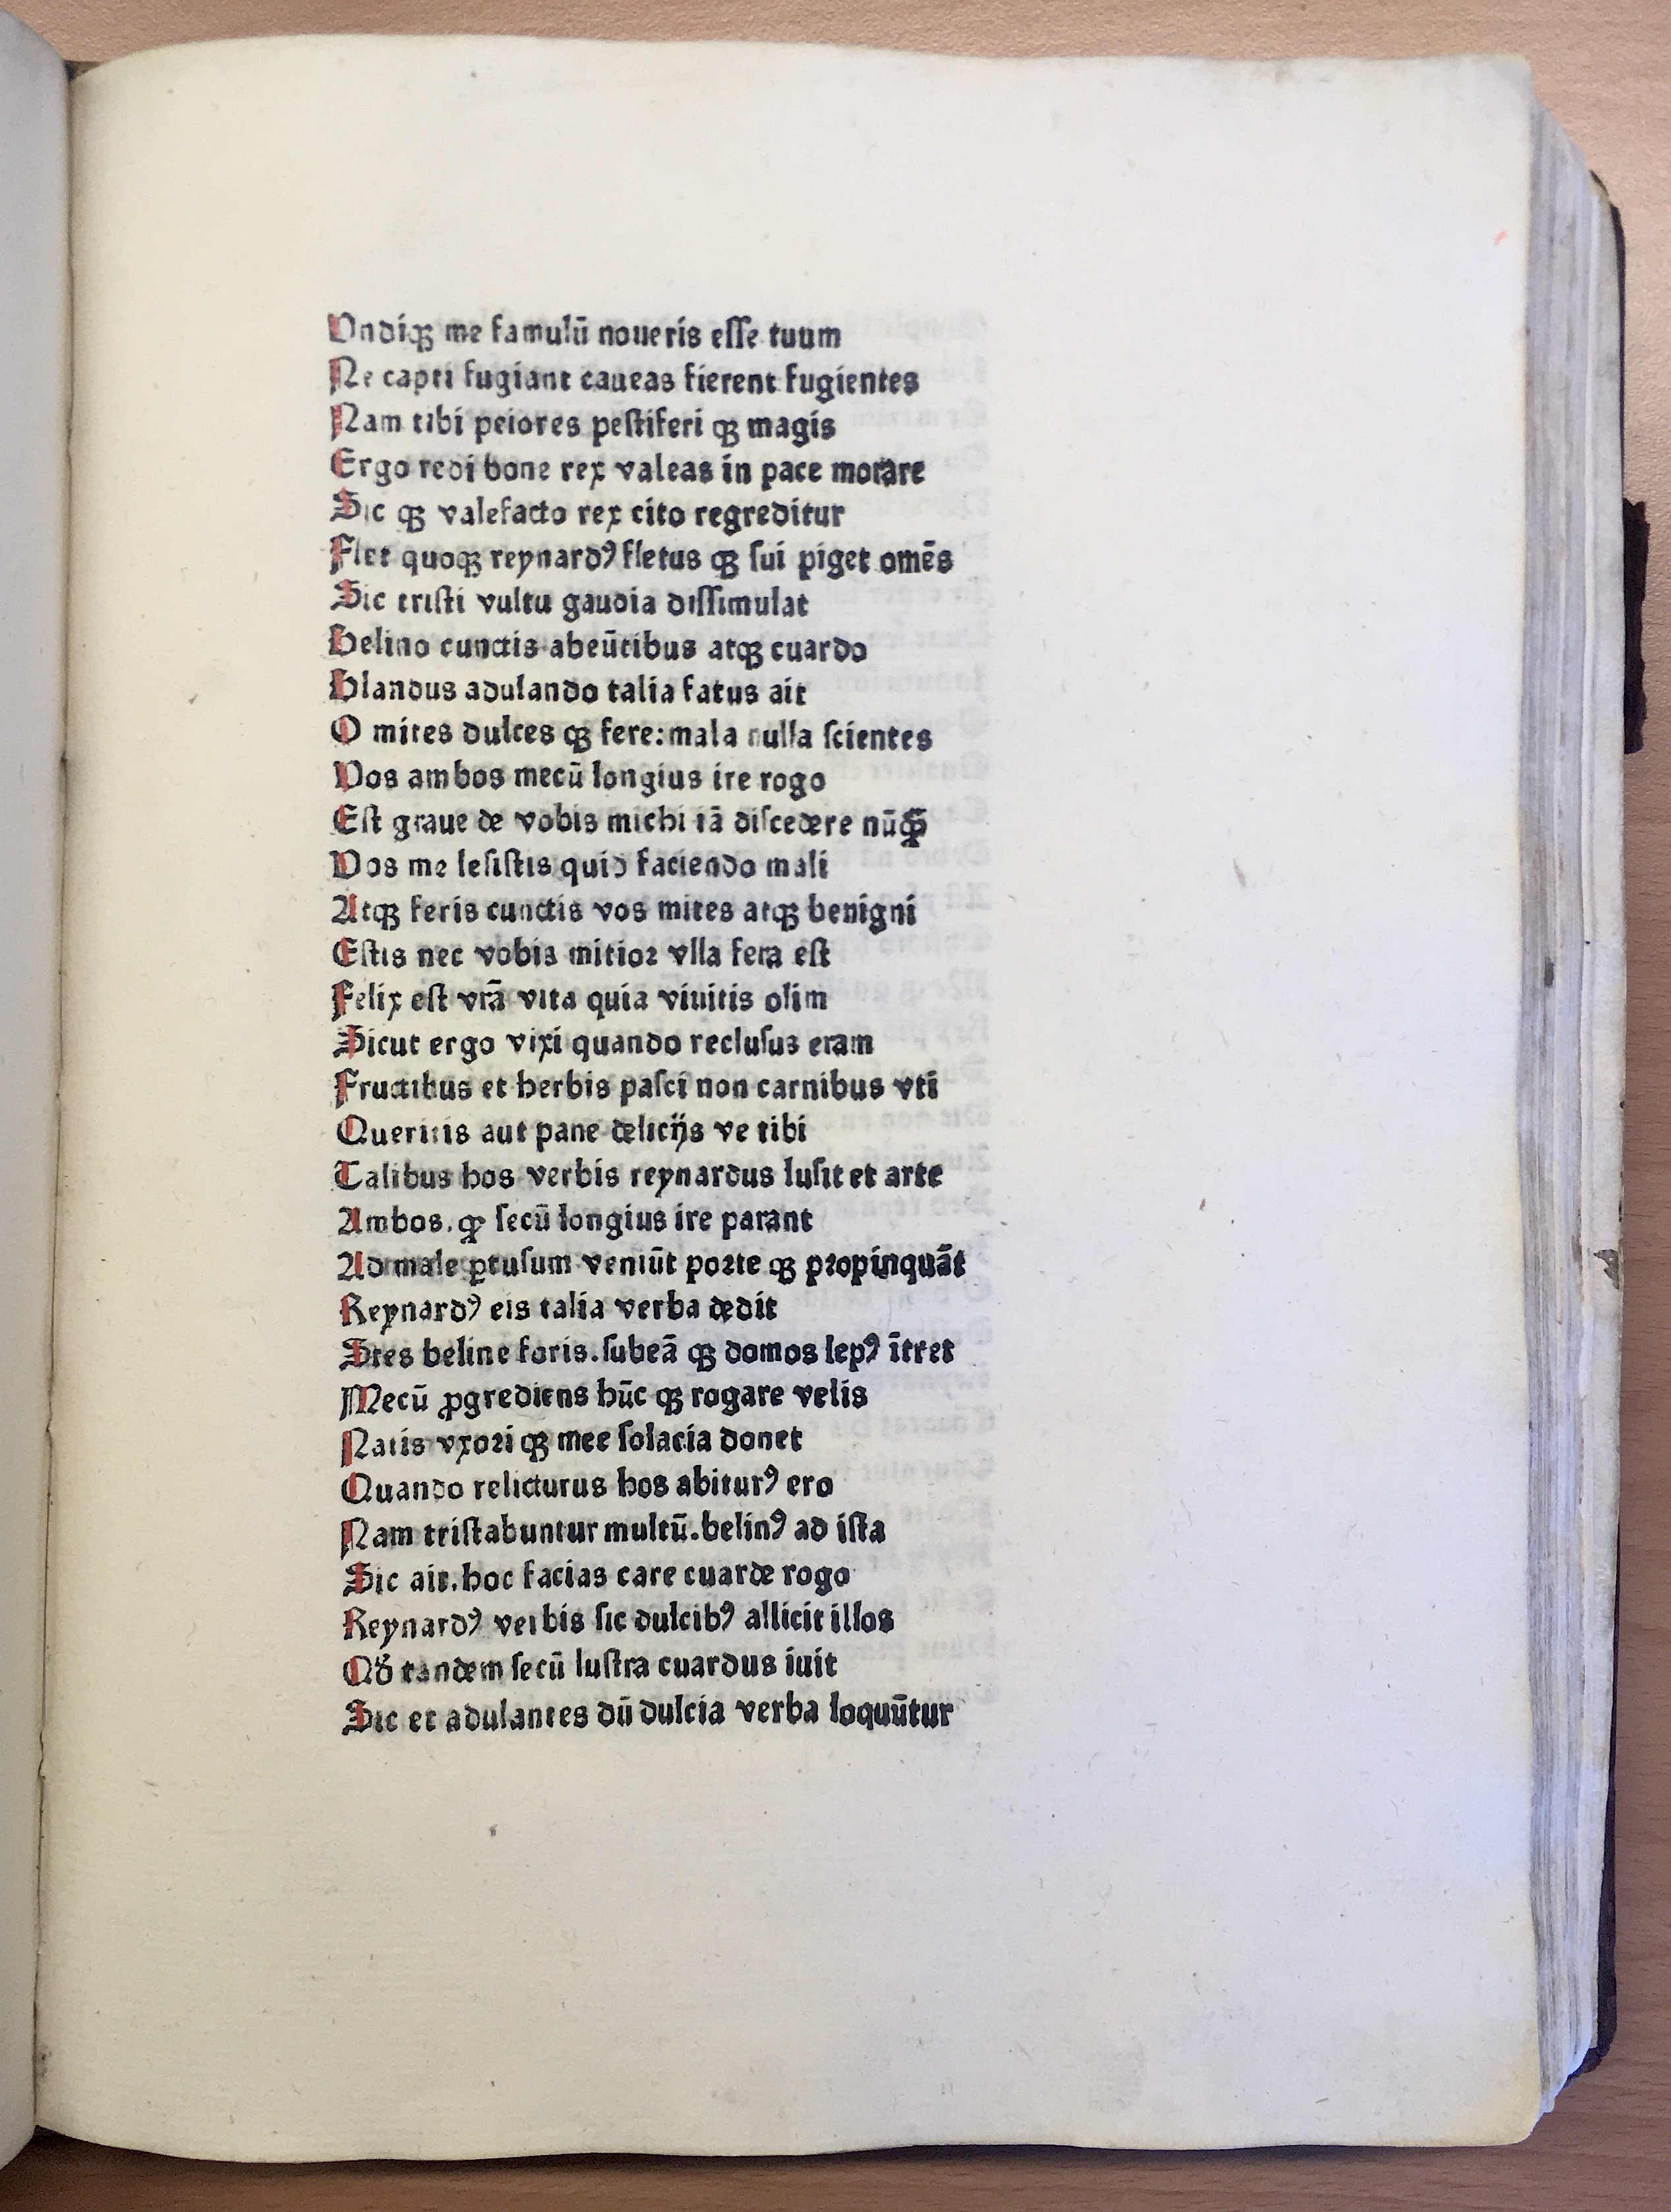 Vndiqꝫ me famulū noueris eſſe tuum
Ne capti fugiant caueas fierent fugientes
Nam tibi peiores peſtiferi qꝫ magis
Ergo redi bone rex valeas in pace morare
Sic qꝫ valefacto rex cito regreditur
Flet quoqꝫ reynardꝰ fletus qꝫ ſui piget omēs
Sic triſti vultu gaudia diſſimulat
Belino cunctis abeūtibus atqꝫ cuardo
Blandus adulando talia fatus ait
O mites dulces qꝫ fere: mala nulla ſcientes
Vos ambos mecū longius ire rogo
Eſt graue de vobis michi iā diſcedere nūꝙ̄
Vos me leſiſtis quid faciendo mali
Atqꝫ feris cunctis vos mites atqꝫ benigni
Eſtis nec vobis mitioꝛ vlla fera eſt
Felix eſt vr̄a vita quia viuitis olim
Sicut ergo vixi quando recluſus eram
Fructibus et herbis paſci non carnibus vti
Queritis aut pane delicijs ve tibi
Talibus hos verbis reynardus luſit et arte
Ambos. ꝙ ſecū longius ire parant
Ad male ꝑtuſum veniūt poꝛte qꝫ pꝛopinquāt
Reynardꝰ eis talia verba dedit
Stes beline foris. ſubeā qꝫ domos lepꝰ ītret
Mecū ꝓgrediens hūc qꝫ rogare velis
Natis vxoꝛi qꝫ mee ſolacia donet
Quando relicturus hos abiturꝰ ero
Nam triſtabuntur multū. belinꝰ ad iſta
Sic ait. hoc facias care cuarde rogo
Reynardꝰ verbis ſic dulcibꝰ allicit illos
Qd̄ tandem ſecū luſtra cuardus iuit
Sic et adulantes dū dulcia verba loquūtur